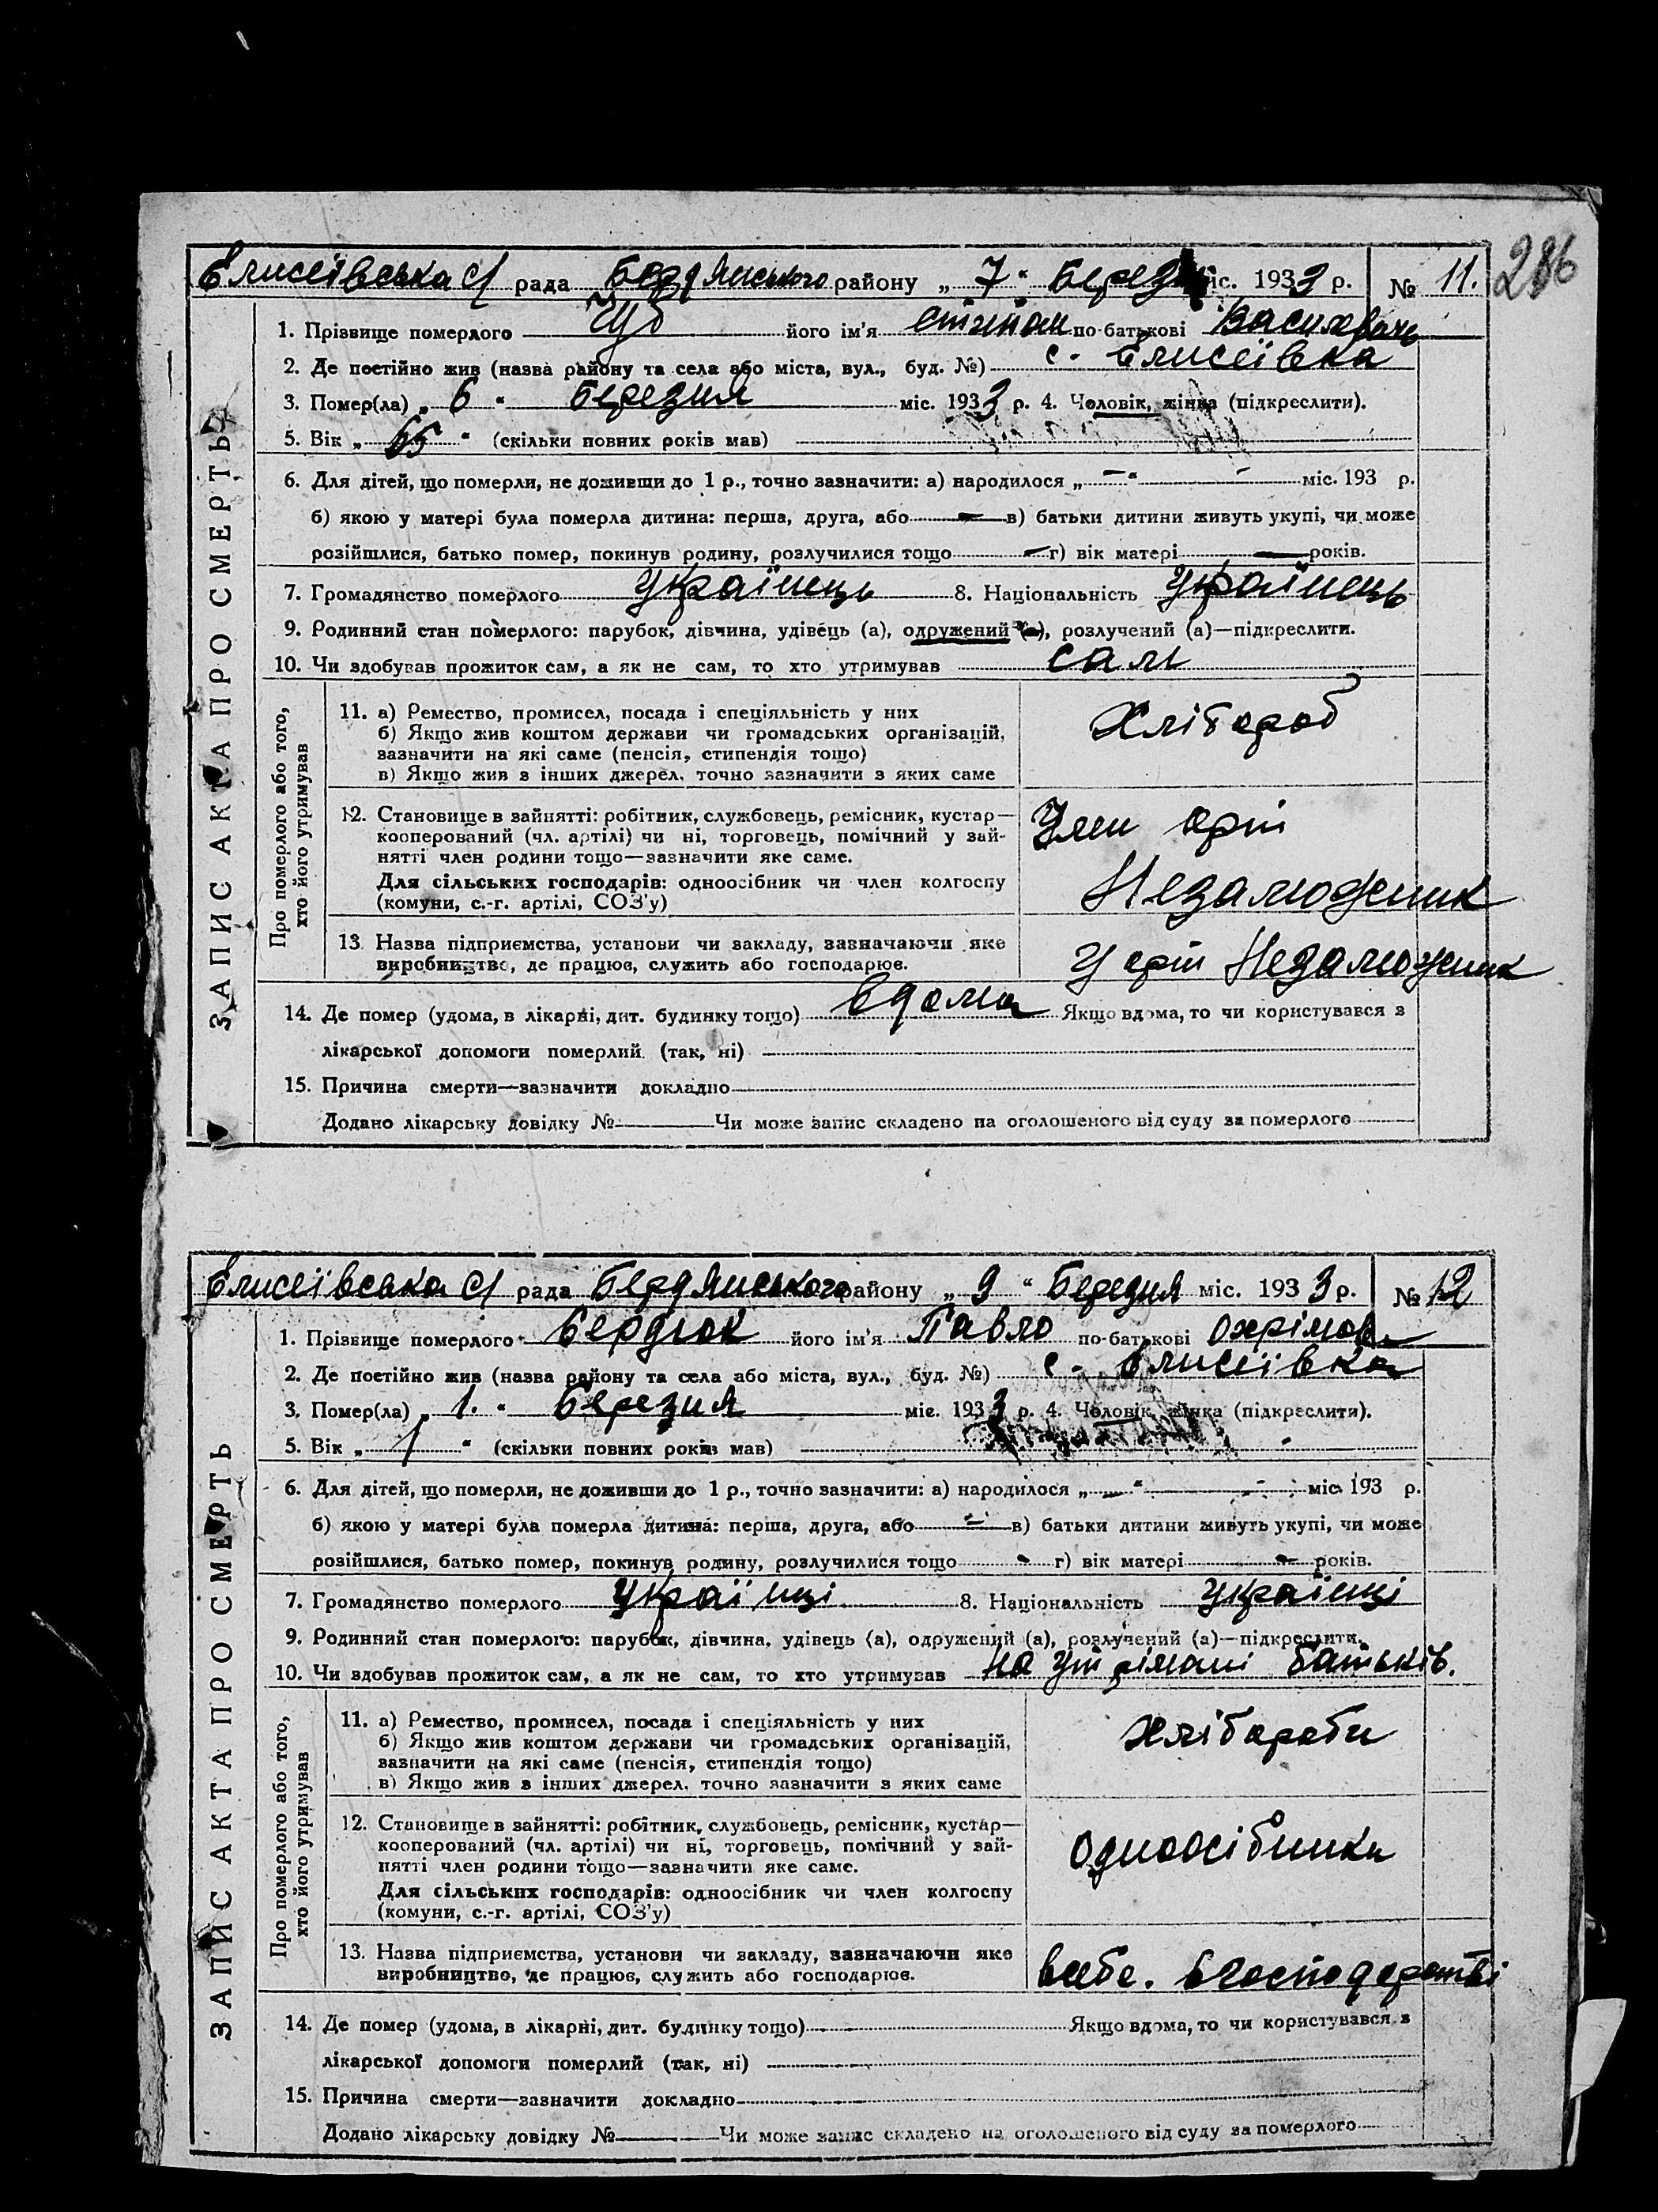 286
Єлисеівська с/ рада Бердянського району „ 7 “ Березня міс. 1933 р. № 11.
1. Прізвище померлого Чуб його ім'я Стипан по-батькові Васильович
2. Де постійно жив (назва району та села або міста, вул., буд. №) с. Єлисеівка
3. Помер(ла) „ 6 “ Березня міс. 1933 р. 4. Чоловік, жінка (підкреслити).
5. Вік „ 65 “ (скільки повних років мав)
6. Для дітей, що померли, не доживши до 1 р., точно зазначити: а) народилося „ — “ — міс. 193 р.
б) якою у матері була померла дитина: перша, друга, або — в) батьки дитини живуть укупі, чи може
розійшлися, батько помер, покинув родину, розлучилися тощо — г) вік матері — років.
7. Громадянство померлого Українець 8. Національність Українець
9. Родинний стан померлого: парубок, дівчина, удівець (а), одружений (а), розлучений (а)—підкреслити.
10. Чи здобував прожиток сам, а як не сам, то хто утримував сам
ЗАПИС АКТА ПРО СМЕРТЬ
Про померлого або того,
хто його утримував
11. а) Ремество, промисел, посада і спеціяльність у них
б) Якщо жив коштом держави чи громадських організацій,
зазначити на які саме (пенсія, стипендія тощо)
в) Якщо жив з інших джерел, точно зазначити з яких саме
Хлібороб
12. Становище в зайнятті: робітник, службовець, ремісник, кустар—
кооперований (чл. артілі) чи ні, торговець, помічний у зай-
нятті член родини тощо—зазначити яке саме.
Для сільських господарів: одноосібник чи член колгоспу
(комуни, с.-г. артілі, СОЗ'у)
Член арт
Незаможник
13. Назва підприємства, установи чи закладу, зазначаючи яке
виробництво, де працює, служить або господарює.
У арт Незаможник
14. Де помер (удома, в лікарні, дит. будинку тощо) вдома Якщо вдома, то чи користувався з
лікарської допомоги померлий (так, ні)
15. Причина смерти—зазначити докладно
Додано лікарську довідку № Чи може запис складено на оголошеного від суду за померлого
Єлисеівська с/ рада Бердянського району „ 9 “ Березня міс. 1933 р. № 12
1. Прізвище померлого Бердюк його ім'я Павло по-батькові Охрімов
2. Де постійно жив (назва району та села або міста, вул., буд. №) с. Єлисеівка
3. Помер(ла) „ 1. “ Березня міс. 1933 р. 4. Чоловік, жінка (підкреслити).
5. Вік „ 1 “ (скільки повних років мав)
6. Для дітей, що померли, не доживши до 1 р., точно зазначити: а) народилося „ — “ — міс. 193 р.
б) якою у матері була померла дитина: перша, друга, або — в) батьки дитини живуть укупі, чи може
розійшлися, батько помер, покинув родину, розлучилися тощо - г) вік матері - років.
7. Громадянство померлого Українці 8. Національність Українці
9. Родинний стан померлого: парубок, дівчина, удівець (а), одружений (а), розлучений (а)—підкреслити.
10. Чи здобував прожиток сам, а як не сам, то хто утримував на утрімані батьків.
ЗАПИС АКТА ПРО СМЕРТЬ
Про померлого або того,
хто його утримував
11. а) Ремество, промисел, посада і спеціяльність у них
б) Якщо жив коштом держави чи громадських організацій,
зазначити на які саме (пенсія, стипендія тощо)
в) Якщо жив з інших джерел, точно зазначити з яких саме
Хлібороби
12. Становище в зайнятті: робітник, службовець, ремісник, кустар—
кооперований (чл. артілі) чи ні, торговець, помічний у зай-
нятті член родини тощо—зазначити яке саме.
Для сільських господарів: одноосібник чи член колгоспу
(комуни, с.-г. артілі, СОЗ'у)
Одноосібники
13. Назва підприємства, установи чи закладу, зазначаючи яке
виробництво, де працює, служить або господарює.
всебе. вгосподарстві
14. Де помер (удома, в лікарні, дит. будинку тощо) Якщо вдома, то чи користувався з
лікарської допомоги померлий (так, ні)
15. Причина смерти—зазначити докладно
Додано лікарську довідку № Чи може запис складено на оголошеного від суду за померлого